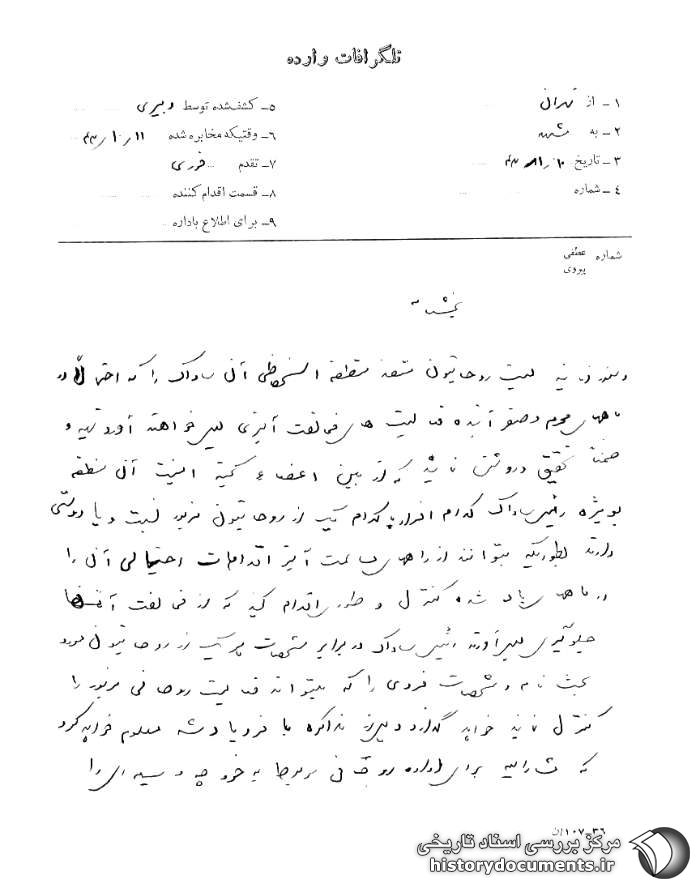 تلگرافات وارده
۱ـ از تهران
۲ـ به مشهد
۳ـ تاریخ
۴ـ شماره
۵ـ کشف‌شده توسط دبیری
۶ـ وقتیکه مخابره شده ۱۱
۷ـ تقدم فوری
۸ـ قسمت اقدام کننده
۹ـ برای اطلاع باداره
شماره عطفی
پیروی
دستور فرمائید لیست روحانیون متعصد منطقه استحفاظی آن ساواک را که احتمالا در
ماههای محرم و صفر آینده فعالیت های مخالفت آمیزی بعمل خواهند آورد تهیه و
ضمنا تحقیق و روشن نمائید که از بین اعضاء کمیته امنیت آن منطقه
بویژه رئیس ساواک کدام افراد با کدام یک از روحانیون مزبور نسبت و یا دوستی
دارند بطوریکه بتوانند از راههای مسالمت آمیز اقدامات احتمالی آنان را
در ماههای یاد شده کنترل و طوری اقدام کنند که از مخالفت آنها
جلوگیری بعمل آورند رئیس ساواک در برابر مشخصات هر یک از روحانیون مورد
بحث نام و مشخصات فردی را که میتواند فعالیت روحانی مزبور را
کنترل نماید خواهد گذارد و پس از مذاکره با فرد یاد شده معلوم خواهد کرد
که مشارالیه برای اداره روحانی مربوطه به خود چه وسیله ای را
۳۶ـ۱۰۷ان
مرکز بررسی اسناد تاریخی
historydocuments.ir